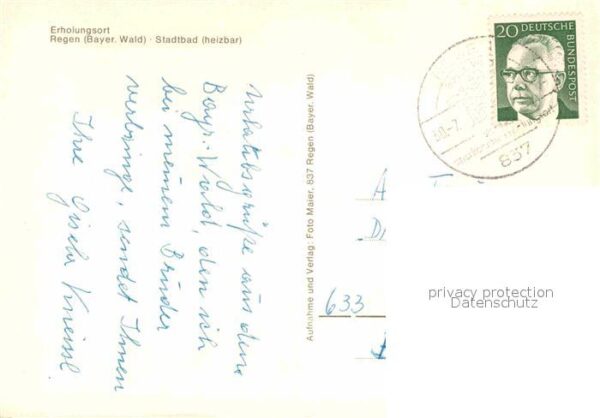 Erholungsort
Regen (Bayer. Wald) · Stadtbad (heizbar)
Urlaubsgrüße aus dem
Bayr. Wald, den ich
bei meinem Bruder
verbringe, sendet Ihnen
Ihre Gisela Kneissl.
Aufnahme und Verlag: Foto Maier, 837 Regen (Bayer. Wald)
20 DEUTSCHE
BUNDESPOST
837
633
privacy protection
Datenschutz